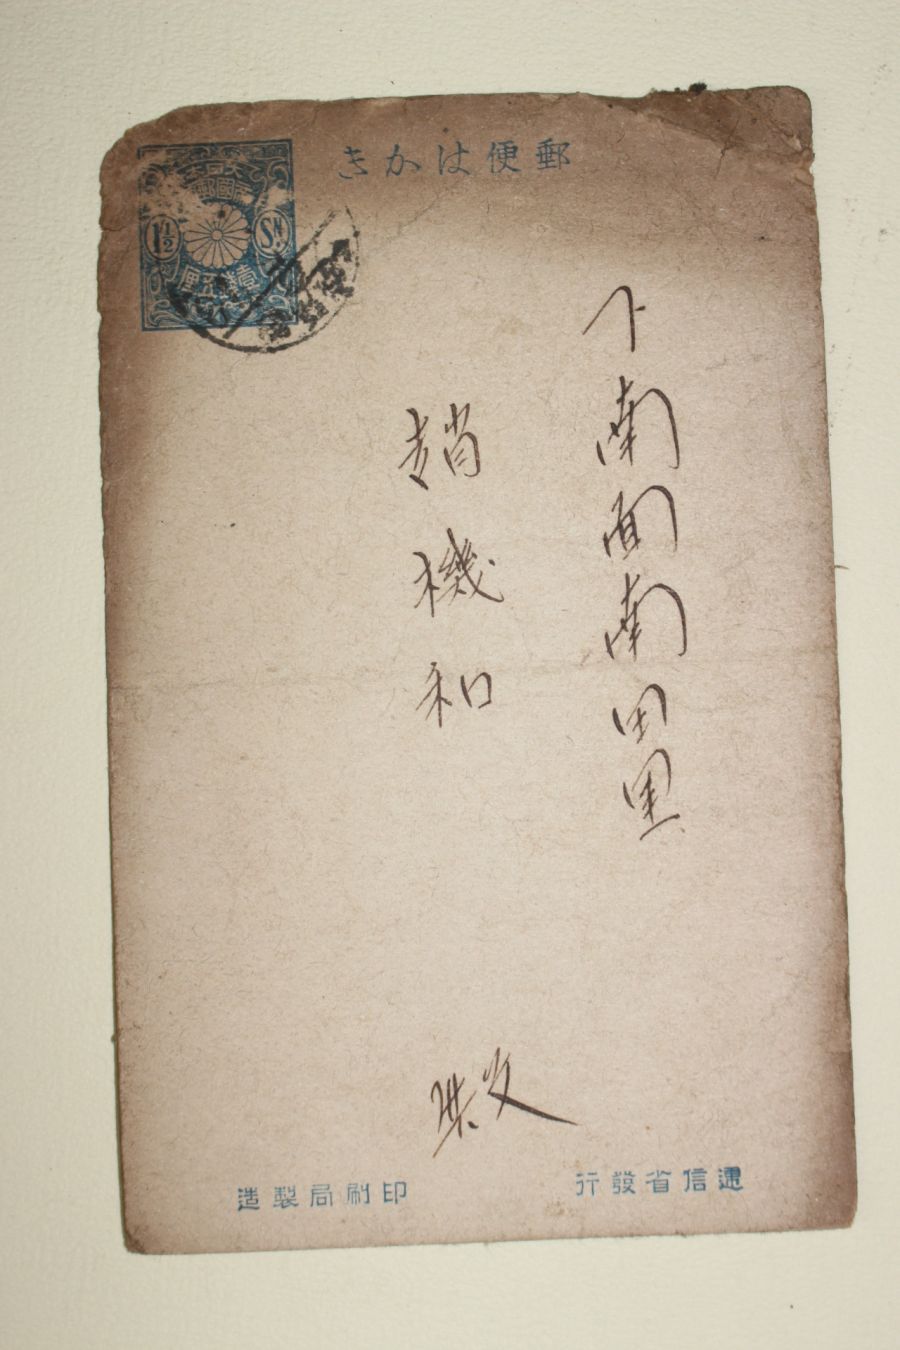 郵便はかき
大日本
帝國郵便
1½ SN.
壹錢五厘
下南面南田里
趙機和
殿
遞信省發行
印刷局製造